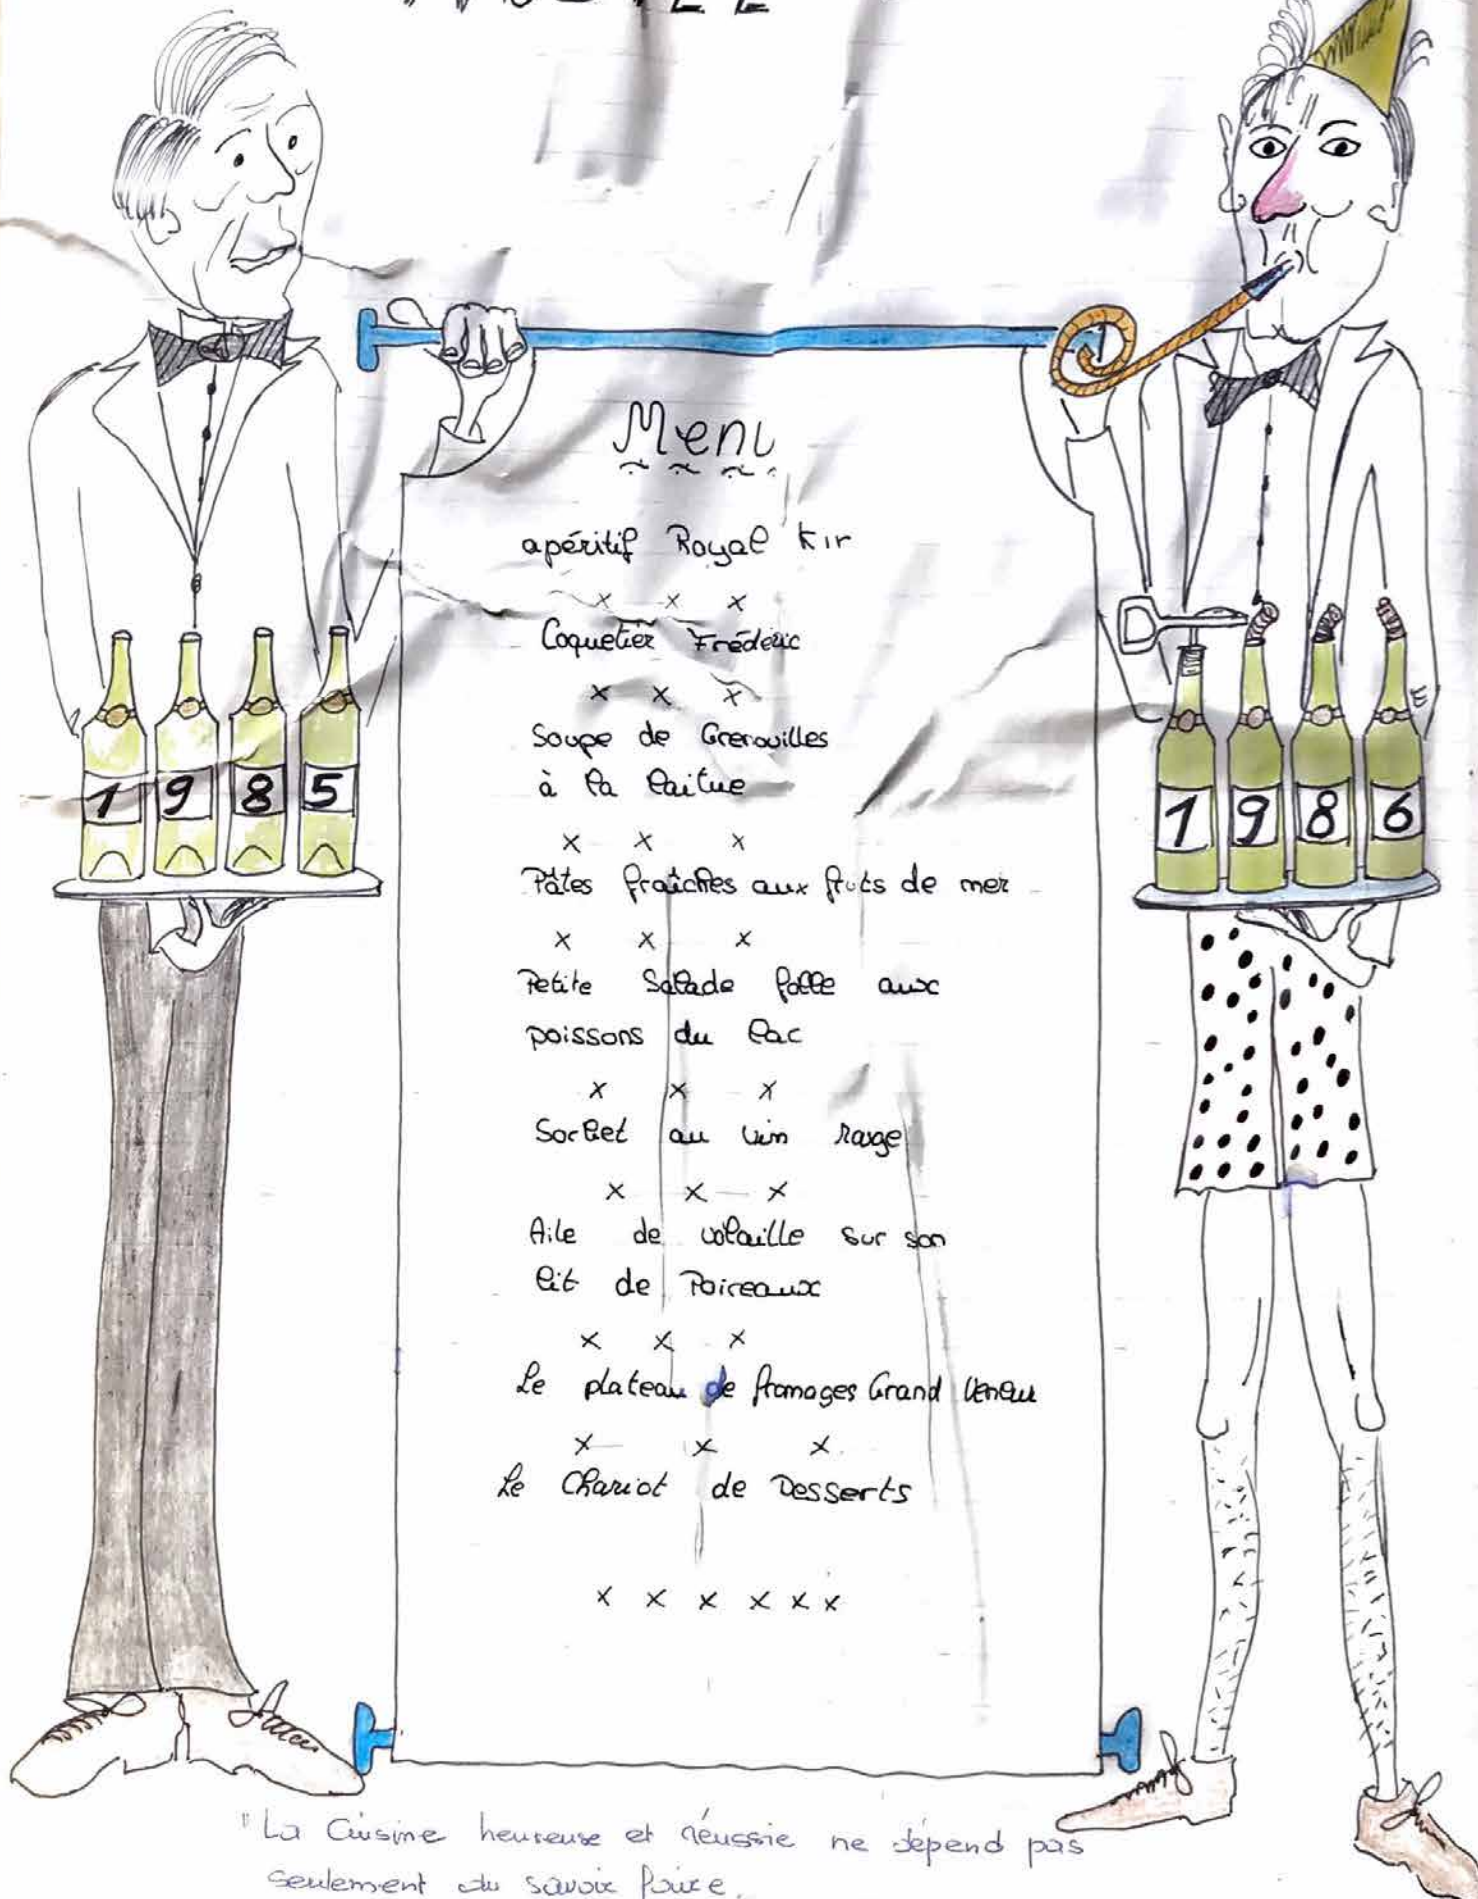 Menu
apéritif Royal Kir
x x x
Coquetier Frédéric
x x x
Soupe de Grenouilles
à la laitue
x x x
Pâtes fraîches aux fruts de mer
x x x
Petite Salade folle aux
poissons du lac
x x x
Sorbet au vin rouge
x x x
Aile de volaille sur son
lit de Poireaux
x x x
Le plateau de fromages Grand Veneur
x x x
Le Chariot de Desserts
x x x x x x
1 9 8 5
1 9 8 6
"La Cuisine heureuse et réussie ne dépend pas
seulement du savoir faire